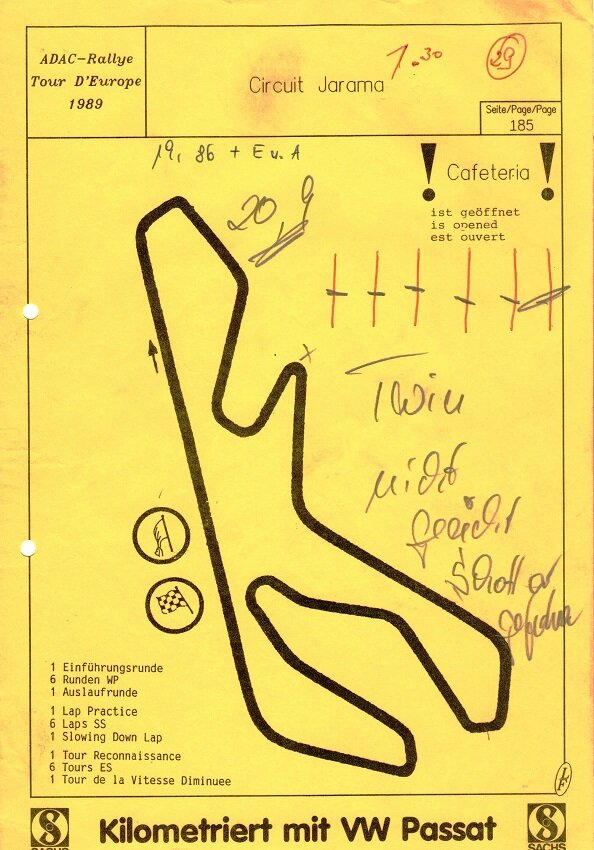 ADAC-Rallye
Tour D'Europe
1989
Circuit Jarama
1.30
29
Seite/Page/Page
185
19, 86 + E u. A
20,9
Cafeteria
ist geöffnet
is opened
est ouvert
Twin
nicht
1 Einführungsrunde
6 Runden WP
1 Auslaufrunde
1 Lap Practice
6 Laps SS
1 Slowing Down Lap
1 Tour Reconnaissance
6 Tours ES
1 Tour de la Vitesse Diminuee
SACHS
Kilometriert mit VW Passat
SACHS